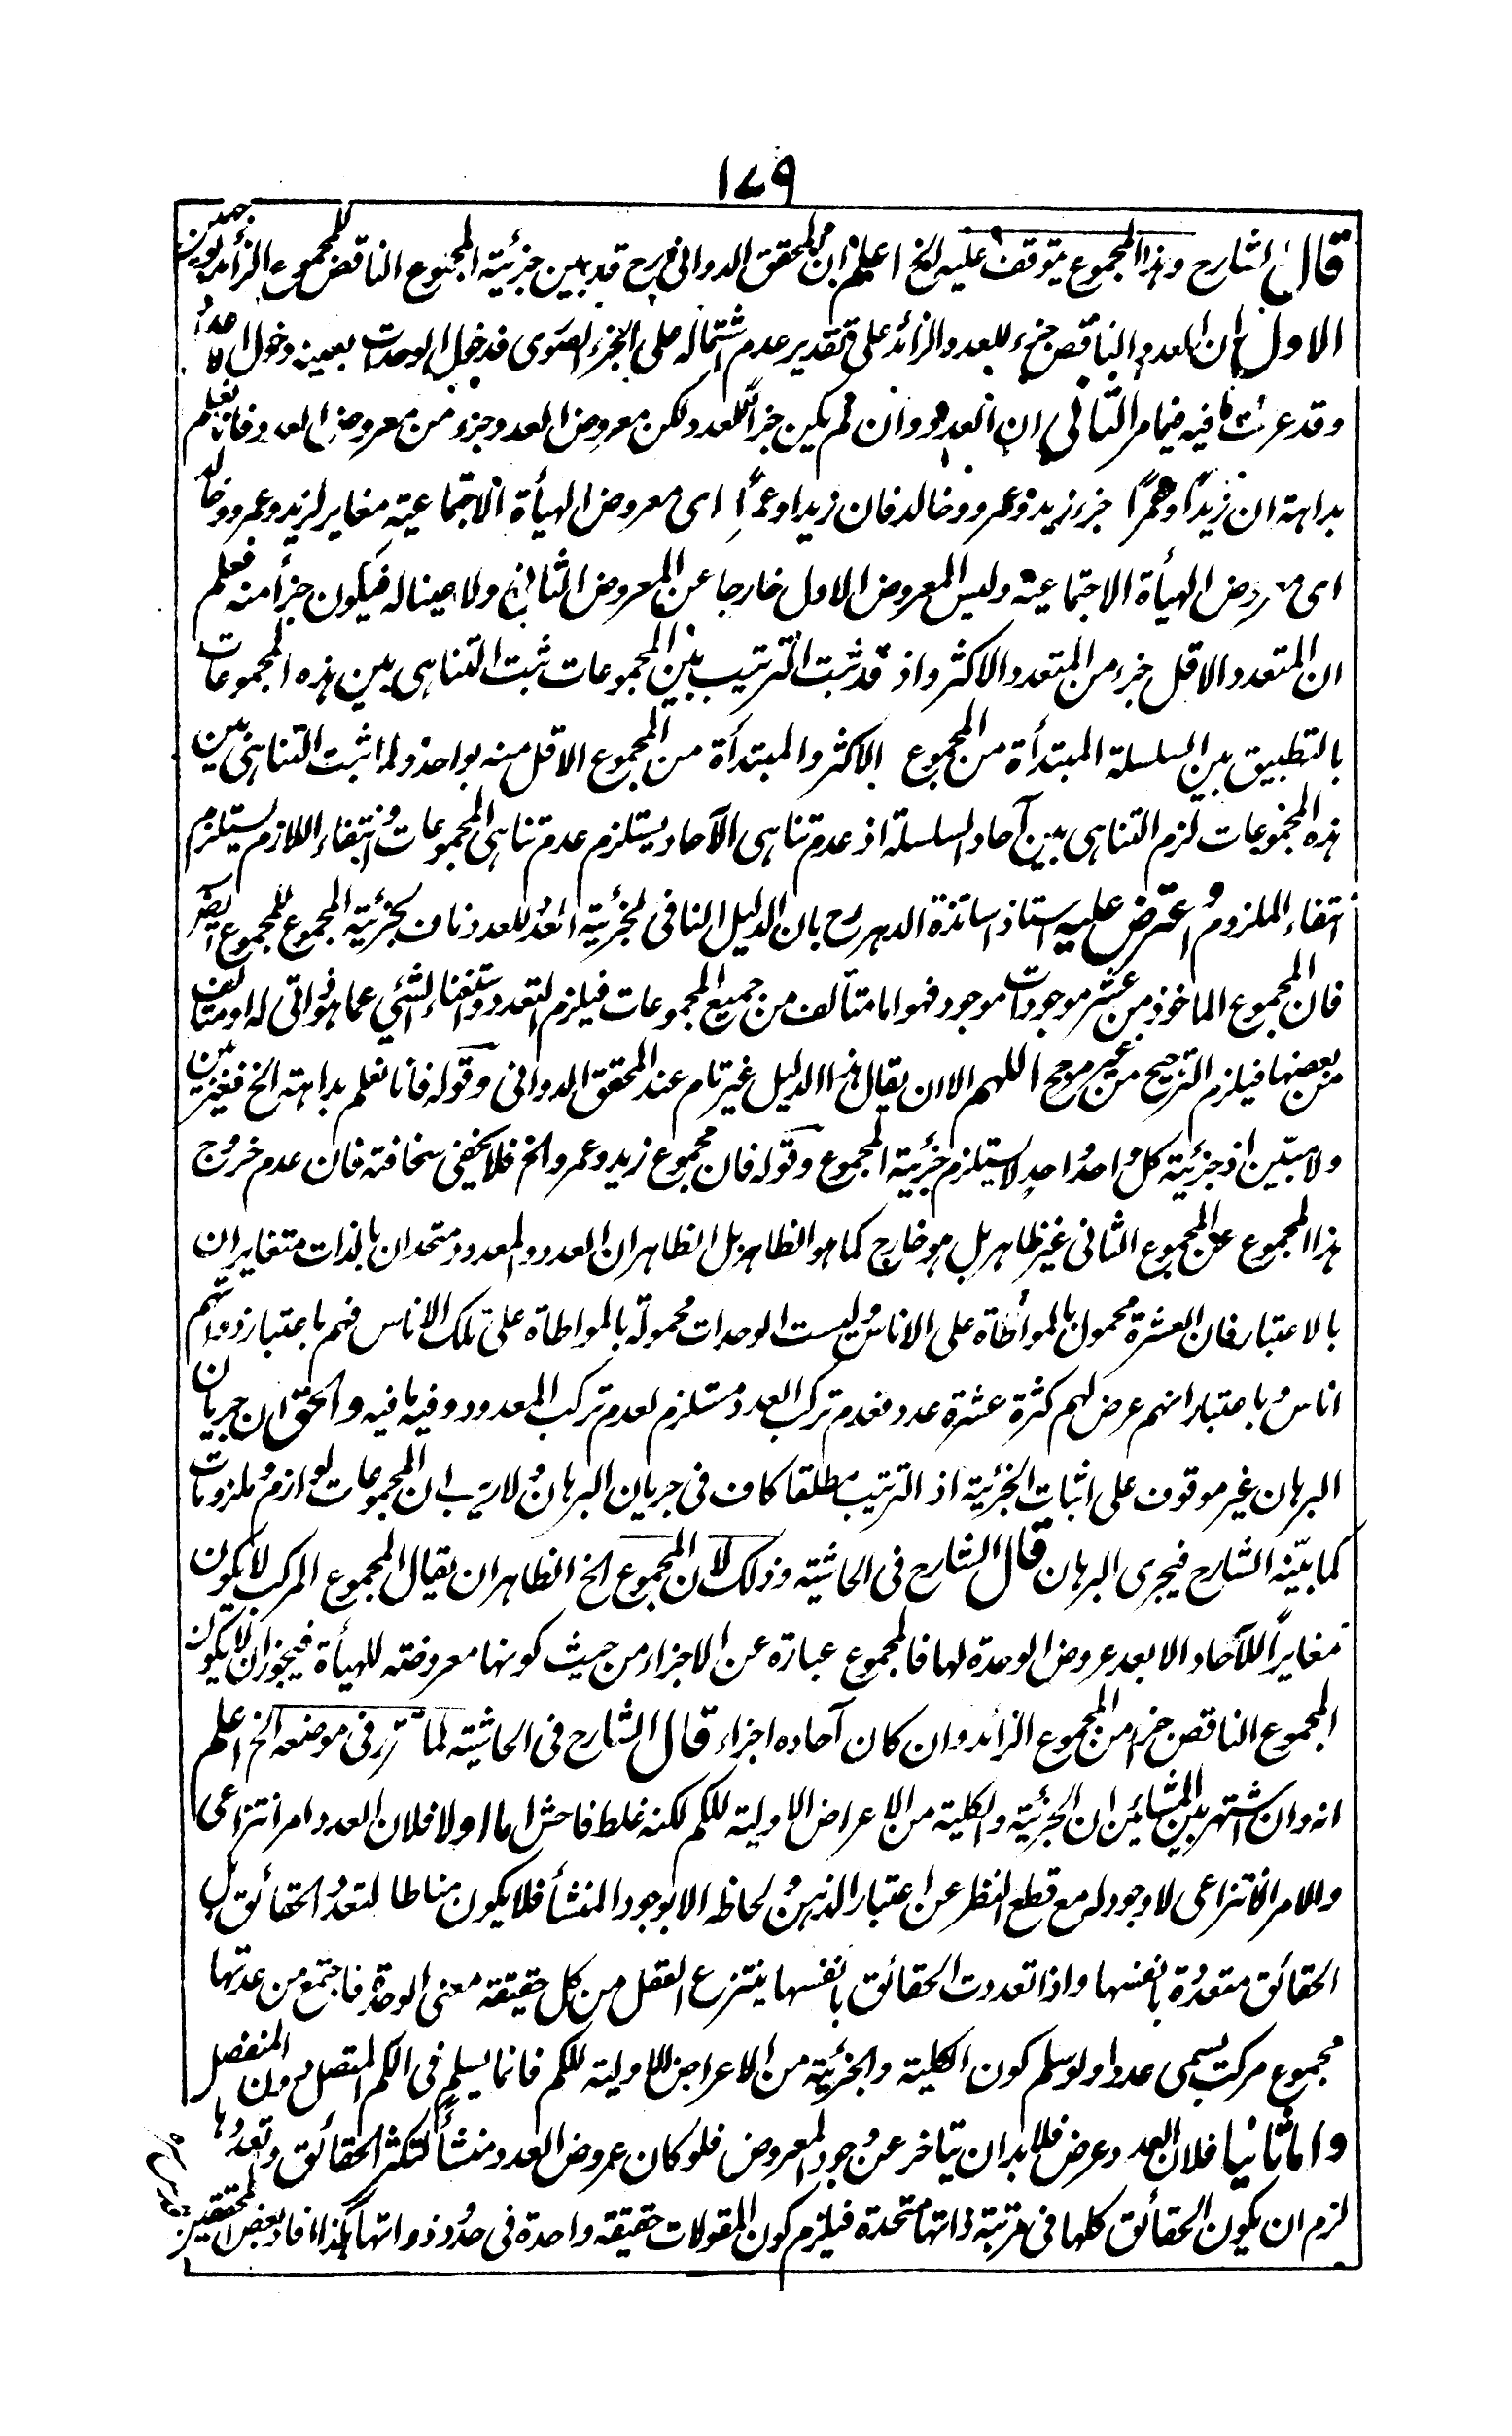 ١٧٩
قال الشارح وهذا المجموع يتوقف عليه الخ اعلم ان المحقق الدوانى رح قد بين جزئية المجموع الناقص للمجموع الزائد بوجهين
الاول ان العدد الناقص جزء للعدد الزائد على تقدير عدم اشتماله على الجزء الصورى فدخول الوحدات بعينه دخول الاعداد
وقد عرفت ما فيه فيما مر الثانى ان العدد وان لم يكن جزأ للعدد لكن معروض العدد جزء من معروض العدد فانا نعلم
بداهة ان زيدا وعمرًا جزء زيد وعمرو وخالد فان زيدا وعمرًا اى معروض الهيأة الاجتماعية مغاير لزيد وعمرو وخالد
اى معروض الهيأة الاجتماعية وليس المعروض الاول خارجا عن المعروض الثانى ولا عينا له فيكون جزأ منه فعلم
ان المتعدد الاقل جزء من المتعدد الاكثر واذ قد ثبت الترتيب بين المجموعات ثبت التناهى بين هذه المجموعات
بالتطبيق بين السلسلة المبتدأة من المجموع الاكثر والمبتدأة من المجموع الاقل منه بواحد ولما ثبت التناهى بين
هذه المجموعات لزم التناهى بين آحاد السلسلة اذ عدم تناهى الآحاد يستلزم عدم تناهى المجموعات وانتفاء اللازم يستلزم
انتفاء الملزوم واعترض عليه استاذ اساتذة الدهر رح بان الدليل النافى لجزئية العدد للعدد ناف لجزئية المجموع للمجموع ايضا
فان المجموع الماخوذ من عشر موجودات موجود فهو اما متألف من جميع المجموعات فيلزم التعدد واستغناء الشئ عما هو ذاتى له او متألف
من بعضها فيلزم الترجيح من غير مرجح اللهم الا ان يقال هذا الدليل غير تام عند المحقق الدوانى وقوله فانا نعلم بداهة الخ فغير بين
ولا مبيّن اذ جزئية كل واحد واحد لا يستلزم جزئية المجموع وقوله فان مجموع زيد وعمرو الخ فلا يخفى سخافته فان عدم خروج
هذا المجموع عن المجموع الثانى غير ظاهر بل هو خارج كما هو الظاهر بل الظاهر ان العدد والمعدود متحدان بالذات متغايران
بالاعتبار فان العشرة محمول بالمواطأة على الاناس وليست الوحدات محمولة بالمواطاة على تلك الاناس فهم باعتبار ذواتهم
اناس وباعتبار انهم عرض لهم كثرة عشرة عدد فعدم تركب العدد مستلزم لعدم تركب المعدود وفيه ما فيه والحق ان جريان
البرهان غير موقوف على اثبات الجزئية اذ الترتيب مطلقا كاف فى جريان البرهان ولا ريب ان المجموعات لوازم وملزومات
كما بيّنه الشارح فيجرى البرهان قال الشارح فى الحاشية وذلك لان المجموع الخ الظاهر ان يقال المجموع المركب لا يكون
مغايرًا للآحاد الا بعد عروض الوحدة لها فالمجموع عبارة عن الاجزاء من حيث كونها معروضته للهيأة فيجوز ان لا يكون
المجموع الناقص جزأ من المجموع الزائد وان كان آحاده اجزاء قال الشارح فى الحاشية لما تقرر فى موضعه الخ اعلم
انه وان اشتهر بين المشائين ان الجزئية والكلية من الاعراض الاولية للكم لكنه غلط فاحش اما اولا فلان العدد امر انتزاعى
وللامر الانتزاعى لا وجود له مع قطع النظر عن اعتبار الذهن ولحاظه الا بوجود المنشأ فلا يكون مناطا لتعدد الحقائق بل
الحقائق متعددة بانفسها واذا تعددت الحقائق بانفسها ينتزع العقل من كل حقيقة معنى الوحدة فاجتمع من عدتها
مجموع مركب يسمى عددا ولو سلم كون الكلية والجزئية من الاعراض الاولية للكم فانما يسلم فى الكم المتصل دون المنفصل
واما ثانيا فلان العدد عرض فلا بد ان يتاخر عن وجود المعروض فلو كان عروض العدد منشأ لتكثر الحقائق وتعددها
لزم ان يكون الحقائق كلها فى مرتبة ذاتها متحدة فيلزم كون المقولات حقيقة واحدة فى حدود ذواتها هكذا افاد بعض المحققين